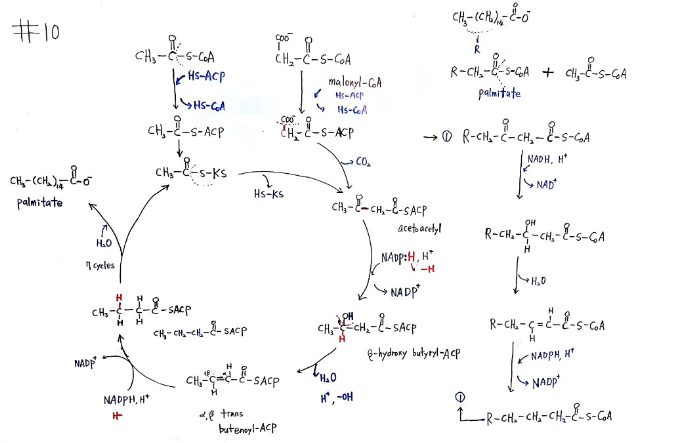 #10
CH₃-C(=O)-S-CoA
HS-ACP
HS-CoA
CH₃-C(=O)-S-ACP
CH₃-C(=O)-S-KS
HS-KS
COO⁻
CH₂-C(=O)-S-CoA
malonyl-CoA
HS-ACP
HS-CoA
COO⁻
CH₂-C(=O)-S-ACP
CO₂
CH₃-C(=O)-CH₂-C(=O)-SACP
acetoacetyl
NADP:H, H⁺
-H
NADP⁺
OH
CH₃-C-CH₂-C(=O)-SACP
H
β-hydroxy butyryl-ACP
H₂O
H⁺, -OH
H
CH₃-C=C-C(=O)-SACP
H
α,β trans
butenoyl-ACP
NADPH, H⁺
H⁻
NADP⁺
H H
CH₃-C-C-C(=O)-SACP
H H
CH₃-CH₂-CH₂-C(=O)-SACP
7 cycles
H₂O
CH₃-(CH₂)₁₄-C(=O)-O⁻
palmitate
CH₃-(CH₂)₁₄-C(=O)-O⁻
R
R-CH₂-C(=O)-S-CoA + CH₃-C(=O)-S-CoA
palmitate
→ ① R-CH₂-C(=O)-CH₂-C(=O)-S-CoA
NADH, H⁺
NAD⁺
OH
R-CH₂-C-CH₂-C(=O)-S-CoA
H
H₂O
H
R-CH₂-C=C-C(=O)-S-CoA
H
NADPH, H⁺
NADP⁺
①
R-CH₂-CH₂-CH₂-C(=O)-S-CoA